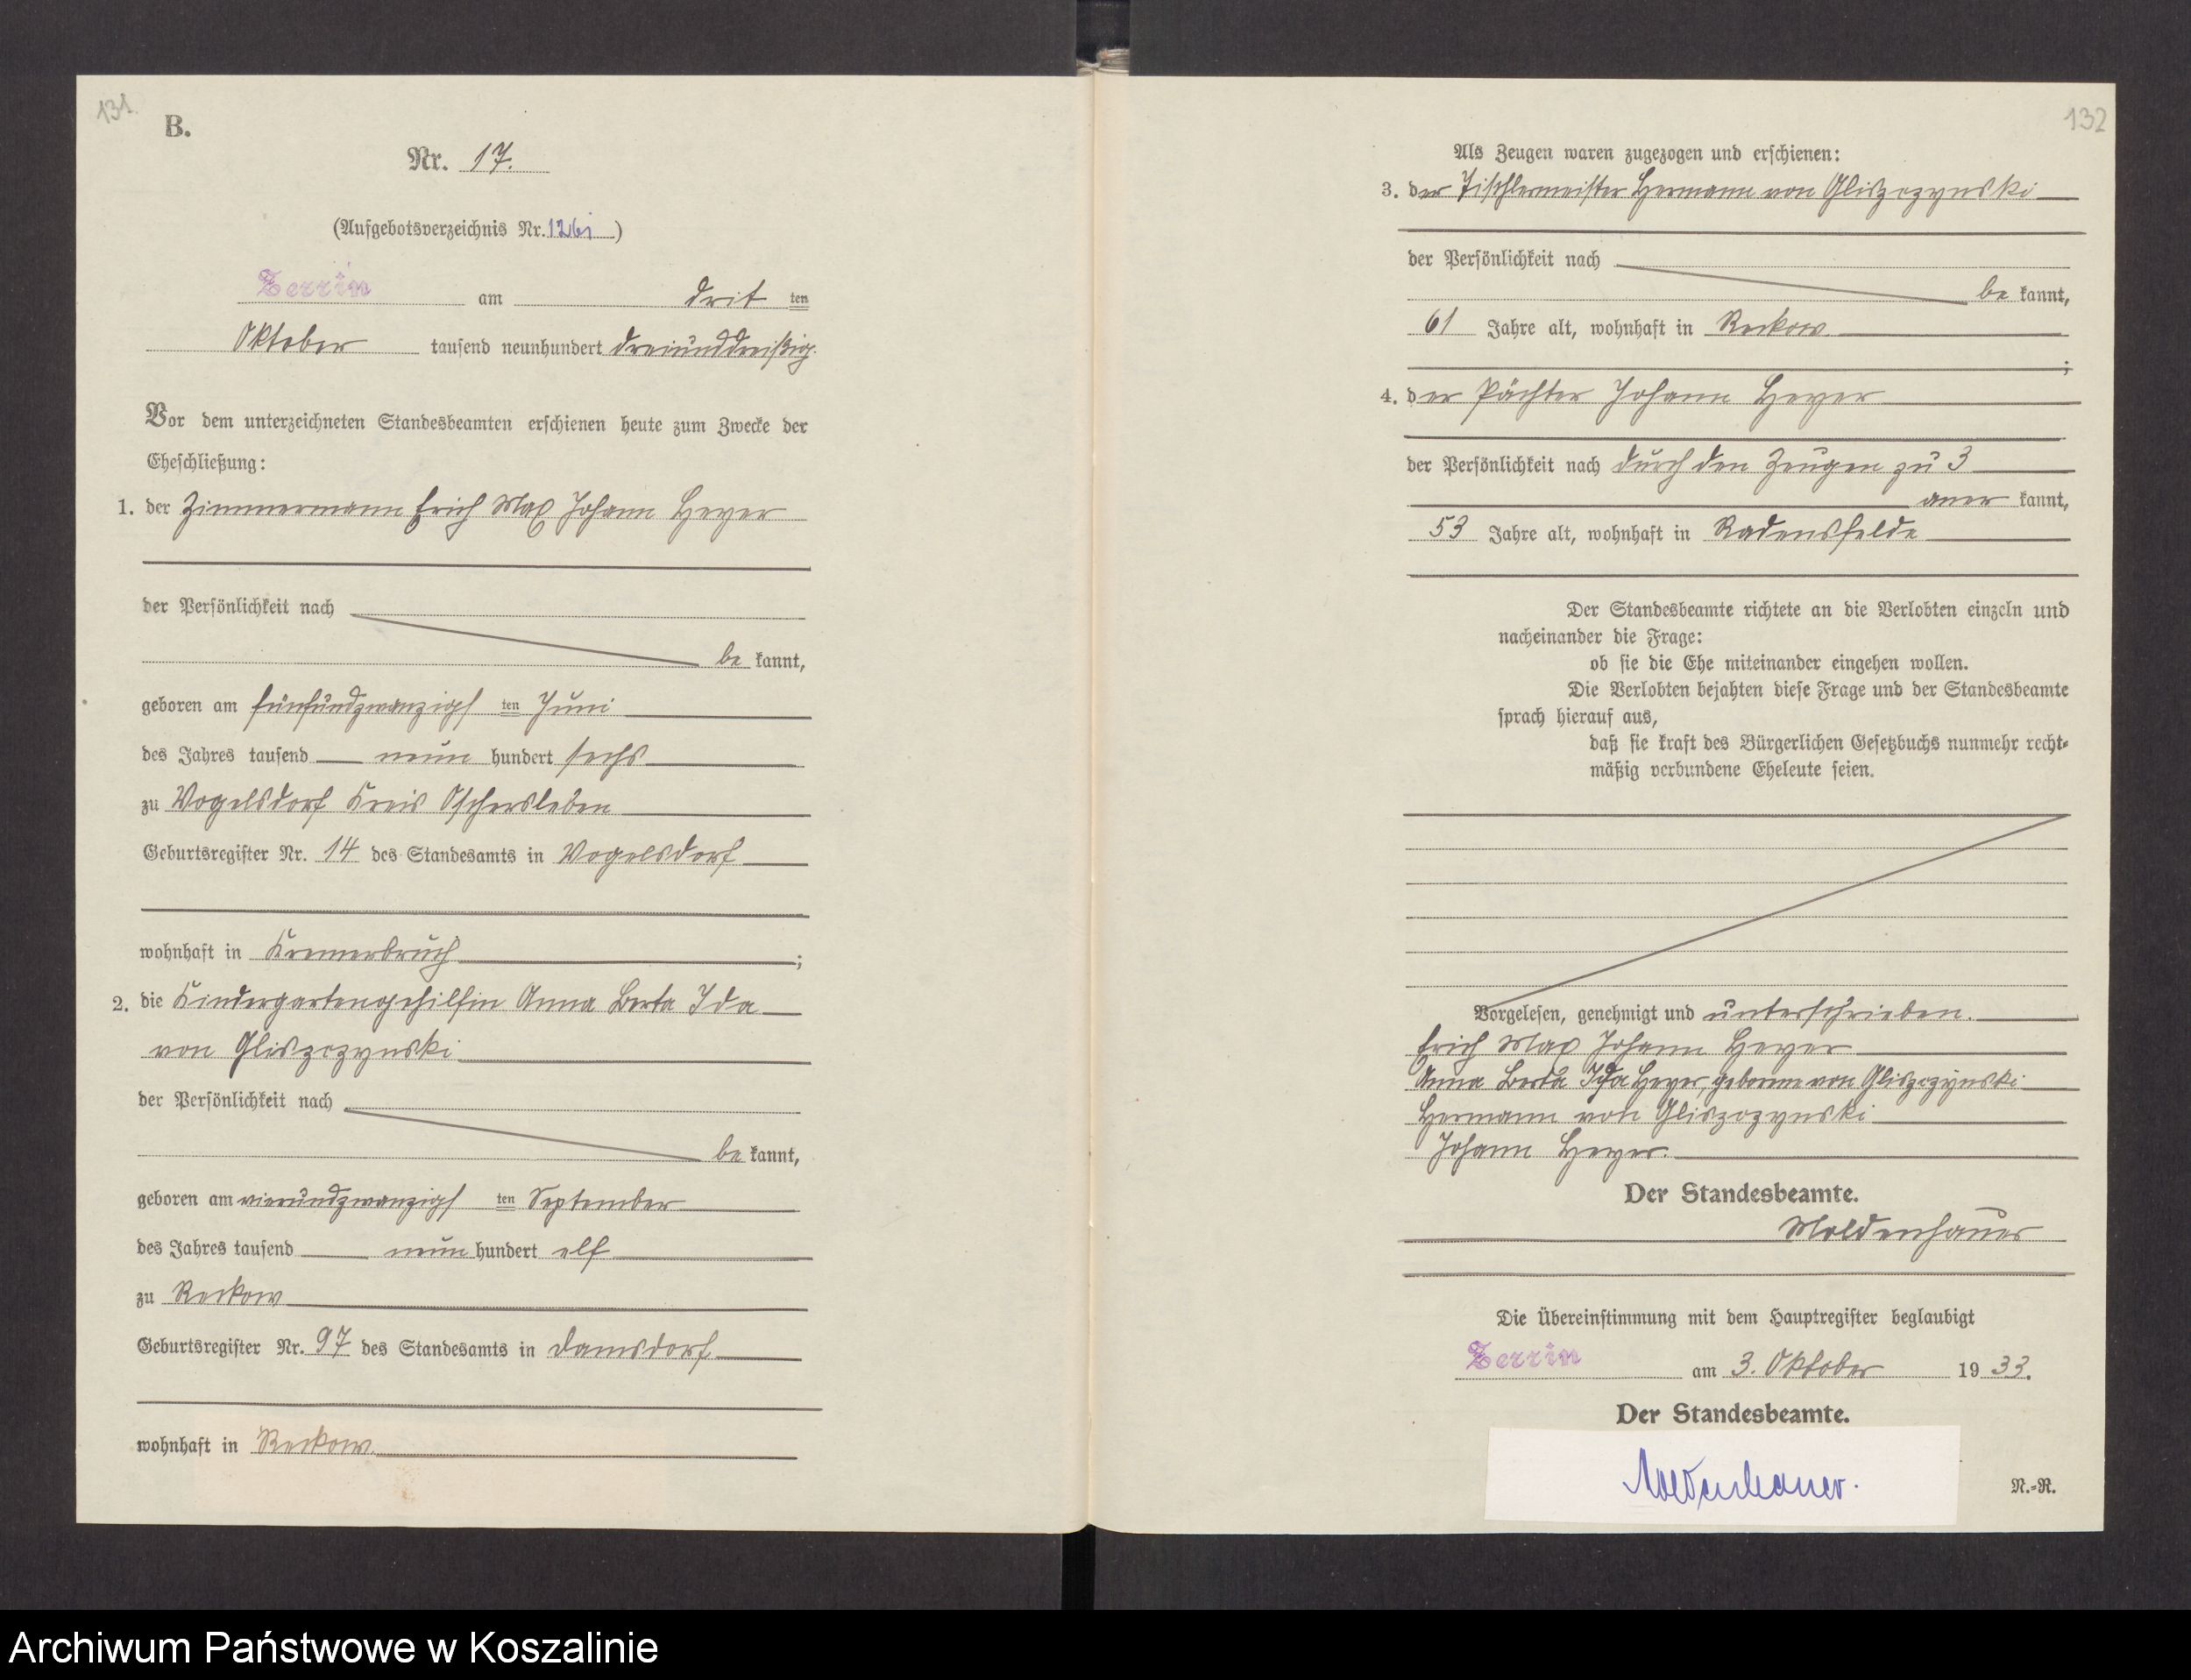 131.
B.
Nr. 17.
(Aufgebotsverzeichnis Nr. )
Zerrin am drit ten
Oktober tausend neunhundert dreiunddreißig.
Vor dem unterzeichneten Standesbeamten erschienen heute zum Zwecke der
Eheschließung:
1. der Zimmermann Erich Max Johann Heyer
der Persönlichkeit nach
be kannt,
geboren am fünfundzwanzigs ten Juni
des Jahres tausend neun hundert sechs
zu Vogelsdorf Kreis Oschersleben
Geburtsregister Nr. 14 des Standesamts in Vogelsdorf
wohnhaft in Kremerbruch ;
2. die Kindergartengehilfin Anna Berta Ida
von Gliszczynski
der Persönlichkeit nach
be kannt,
geboren am vierundzwanzigs ten September
des Jahres tausend neun hundert elf
zu Reckow
Geburtsregister Nr. 97 des Standesamts in Damsdorf
wohnhaft in Reckow.
132
Als Zeugen waren zugezogen und erschienen:
3. der Tischlermeister Hermann von Gliszczynski
der Persönlichkeit nach
be kannt,
61 Jahre alt, wohnhaft in Reckow.
;
4. der Pächter Johann Heyer
der Persönlichkeit nach durch den Zeugen zu 3
aner kannt,
53 Jahre alt, wohnhaft in Radensfelde
Der Standesbeamte richtete an die Verlobten einzeln und
nacheinander die Frage:
ob sie die Ehe miteinander eingehen wollen.
Die Verlobten bejahten diese Frage und der Standesbeamte
sprach hierauf aus,
daß sie kraft des Bürgerlichen Gesetzbuchs nunmehr recht-
mäßig verbundene Eheleute seien.
Vorgelesen, genehmigt und unterschrieben.
Erich Max Johann Heyer
Anna Berta Ida Heyer, geborene von Gliszczynski
Hermann von Gliszczynski
Johann Heyer.
Der Standesbeamte.
Moldenhauer
Die Übereinstimmung mit dem Hauptregister beglaubigt
Zerrin am 3. Oktober 19 33.
Der Standesbeamte.
Moldenhauer.
N.-R.
Archiwum Państwowe w Koszalinie